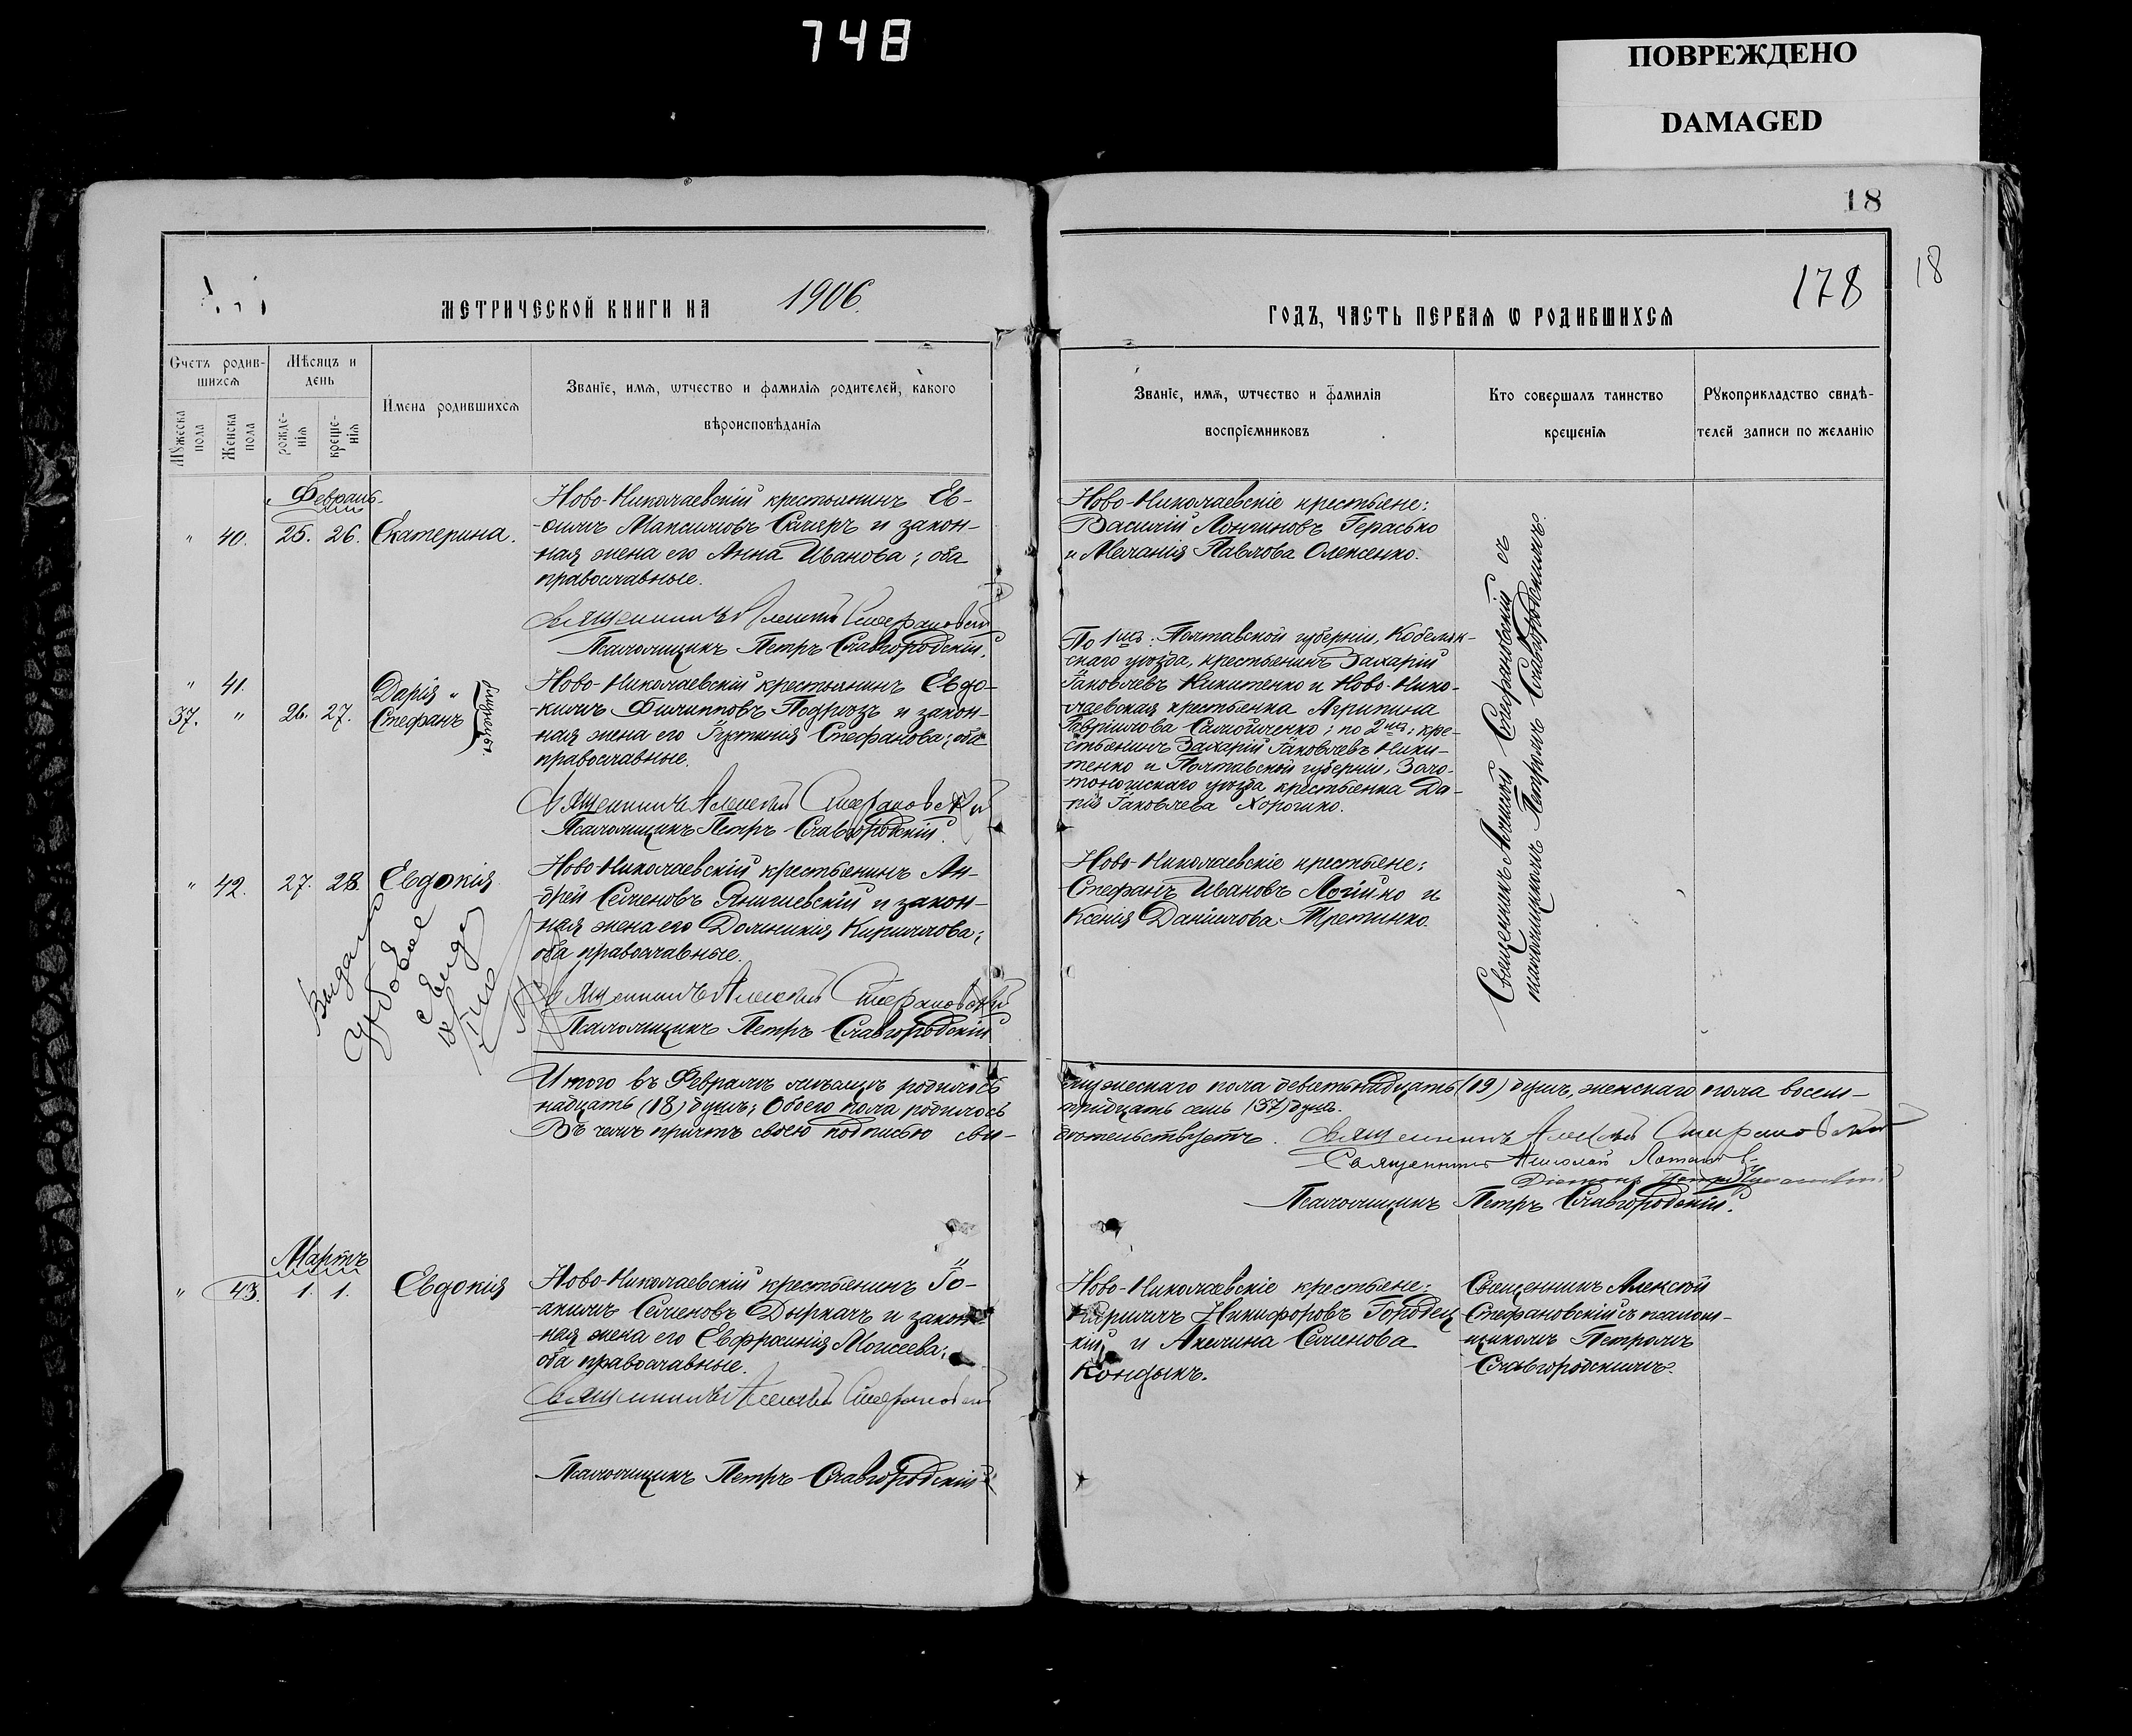 748
ПОВРЕЖДЕНО
DAMAGED
18
18
178
МЕТРИЧЕСКОЙ КНИГИ НА 1906.
ГОДЪ, ЧАСТЬ ПЕРВАЯ Ѡ РОДИВШИХСЯ
Счетъ родив-
шихся
Мѣсяцъ и
день
Мужеска
пола
Женска
пола
рожде-
нія
креще-
нія
Имена родившихся
Званіе, имя, ѡтчество и фамилія родителей, какого
вѣроисповѣданія
Званіе, имя, ѡтчество и фамилія
воспріемниковъ
Кто совершалъ таинство
крещенія
Рукоприкладство свидѣ-
телей записи по желанію
Февраль
" 40. 25. 26. Екатерина.
Ново-Николаевскій крестьянинъ Ев-
-фимъ Максимовъ Скляръ и закон-
ная жена его Анна Иванова; оба
православные.
Священникъ Алексѣй Стефановскій
Псаломщикъ Петръ Славгородскій.
Ново-Николаевскіе крестьяне:
Василій Лонгиновъ Герасько
и Меланія Павлова Олексенко.
" 41. Дарія "
37. " 26. 27. Стефанъ
близнецы.
Ново-Николаевскій крестьянинъ Евдо-
кимъ Филипповъ Подрѣзъ и закон-
ная жена его Іустинія Стефанова; оба
православные.
Священникъ Алексѣй Стефановскій
Псаломщикъ Петръ Славгородскій.
По 1мъ: Полтавской губерніи, Кобеляк-
скаго уѣзда, крестьянинъ Захарій
Іаковлевъ Никитенко и Ново-Нико-
лаевская крестьянка Агрипина
Гавріилова Самойленко; по 2мъ: кре-
стьянинъ Захарій Іаковлевъ Ники-
тенко и Полтавской губерніи, Золо-
тоношскаго уѣзда, крестьянка Да-
рія Іаковлева Хорошко.
Священникъ Алексѣй Стефановскій съ
псаломщикомъ Петромъ Славгородскимъ.
" 42. 27. 28. Евдокія
Ново-Николаевскій крестьянинъ Ан-
дрей Семеновъ Янишевскій и закон-
ная жена его Домникія Кириллова;
оба православные.
Священникъ Алексѣй Стефановскій
Псаломщикъ Петръ Славгородскій
Ново-Николаевскіе крестьяне:
Стефанъ Ивановъ Логійко и
Ксенія Даніилова Третинко.
Выдано
Итого въ Февралѣ мѣсяцѣ родилось мужескаго пола девятьнадцать (19) душъ, женскаго пола восем-
надцать (18) душъ; Обоего пола родилось тридцать семь (37) душъ.
Въ чемъ причтъ своею подписью сви- дѣтельствуетъ. Священникъ Алексѣй Стефановскій
Священникъ Николай
Діаконъ Петръ
Псаломщикъ Петръ Славгородскій.
Мартъ
" 43. 1. 1. Евдокія
Ново-Николаевскій крестьянинъ Іо-
-акимъ Семеновъ Дыркачъ и закон-
ная жена его Евфросинія Моисеева;
оба православные.
Священникъ Алексѣй Стефановскій
Псаломщикъ Петръ Славгородскій
Ново-Николаевскіе крестьяне:
Кириллъ Никифоровъ Городец-
кій и Акилина Семенова
Кондыкъ.
Священникъ Алексѣй
Стефановскій съ псалом-
щикомъ Петромъ
Славгородскимъ.